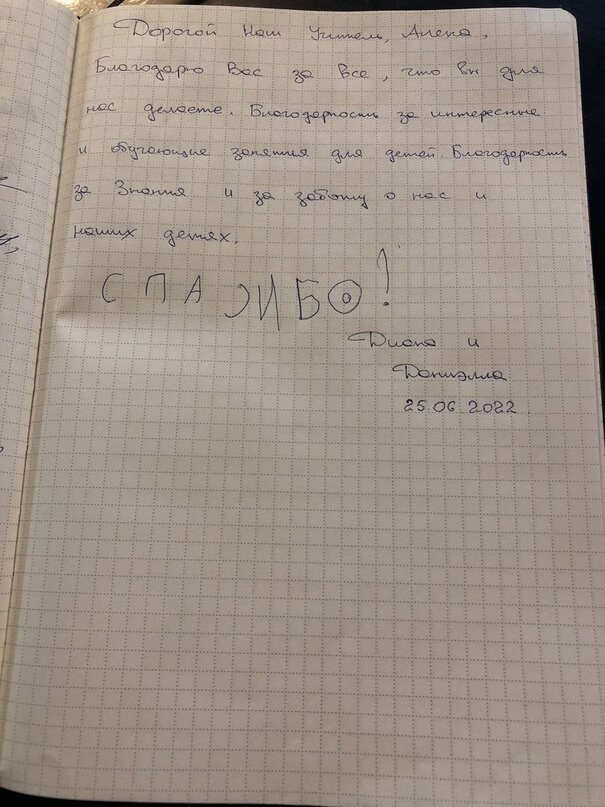 Дорогой Наш Учитель, Алена.
Благодарю Вас за все, что вы для
нас делаете. Благодарность за интересные
и обучающие занятия для детей. Благодарность
за Знания и за заботу о нас и
наших детях.
СПАСИБО!
Диана и
Даниэлла
25.06.2022